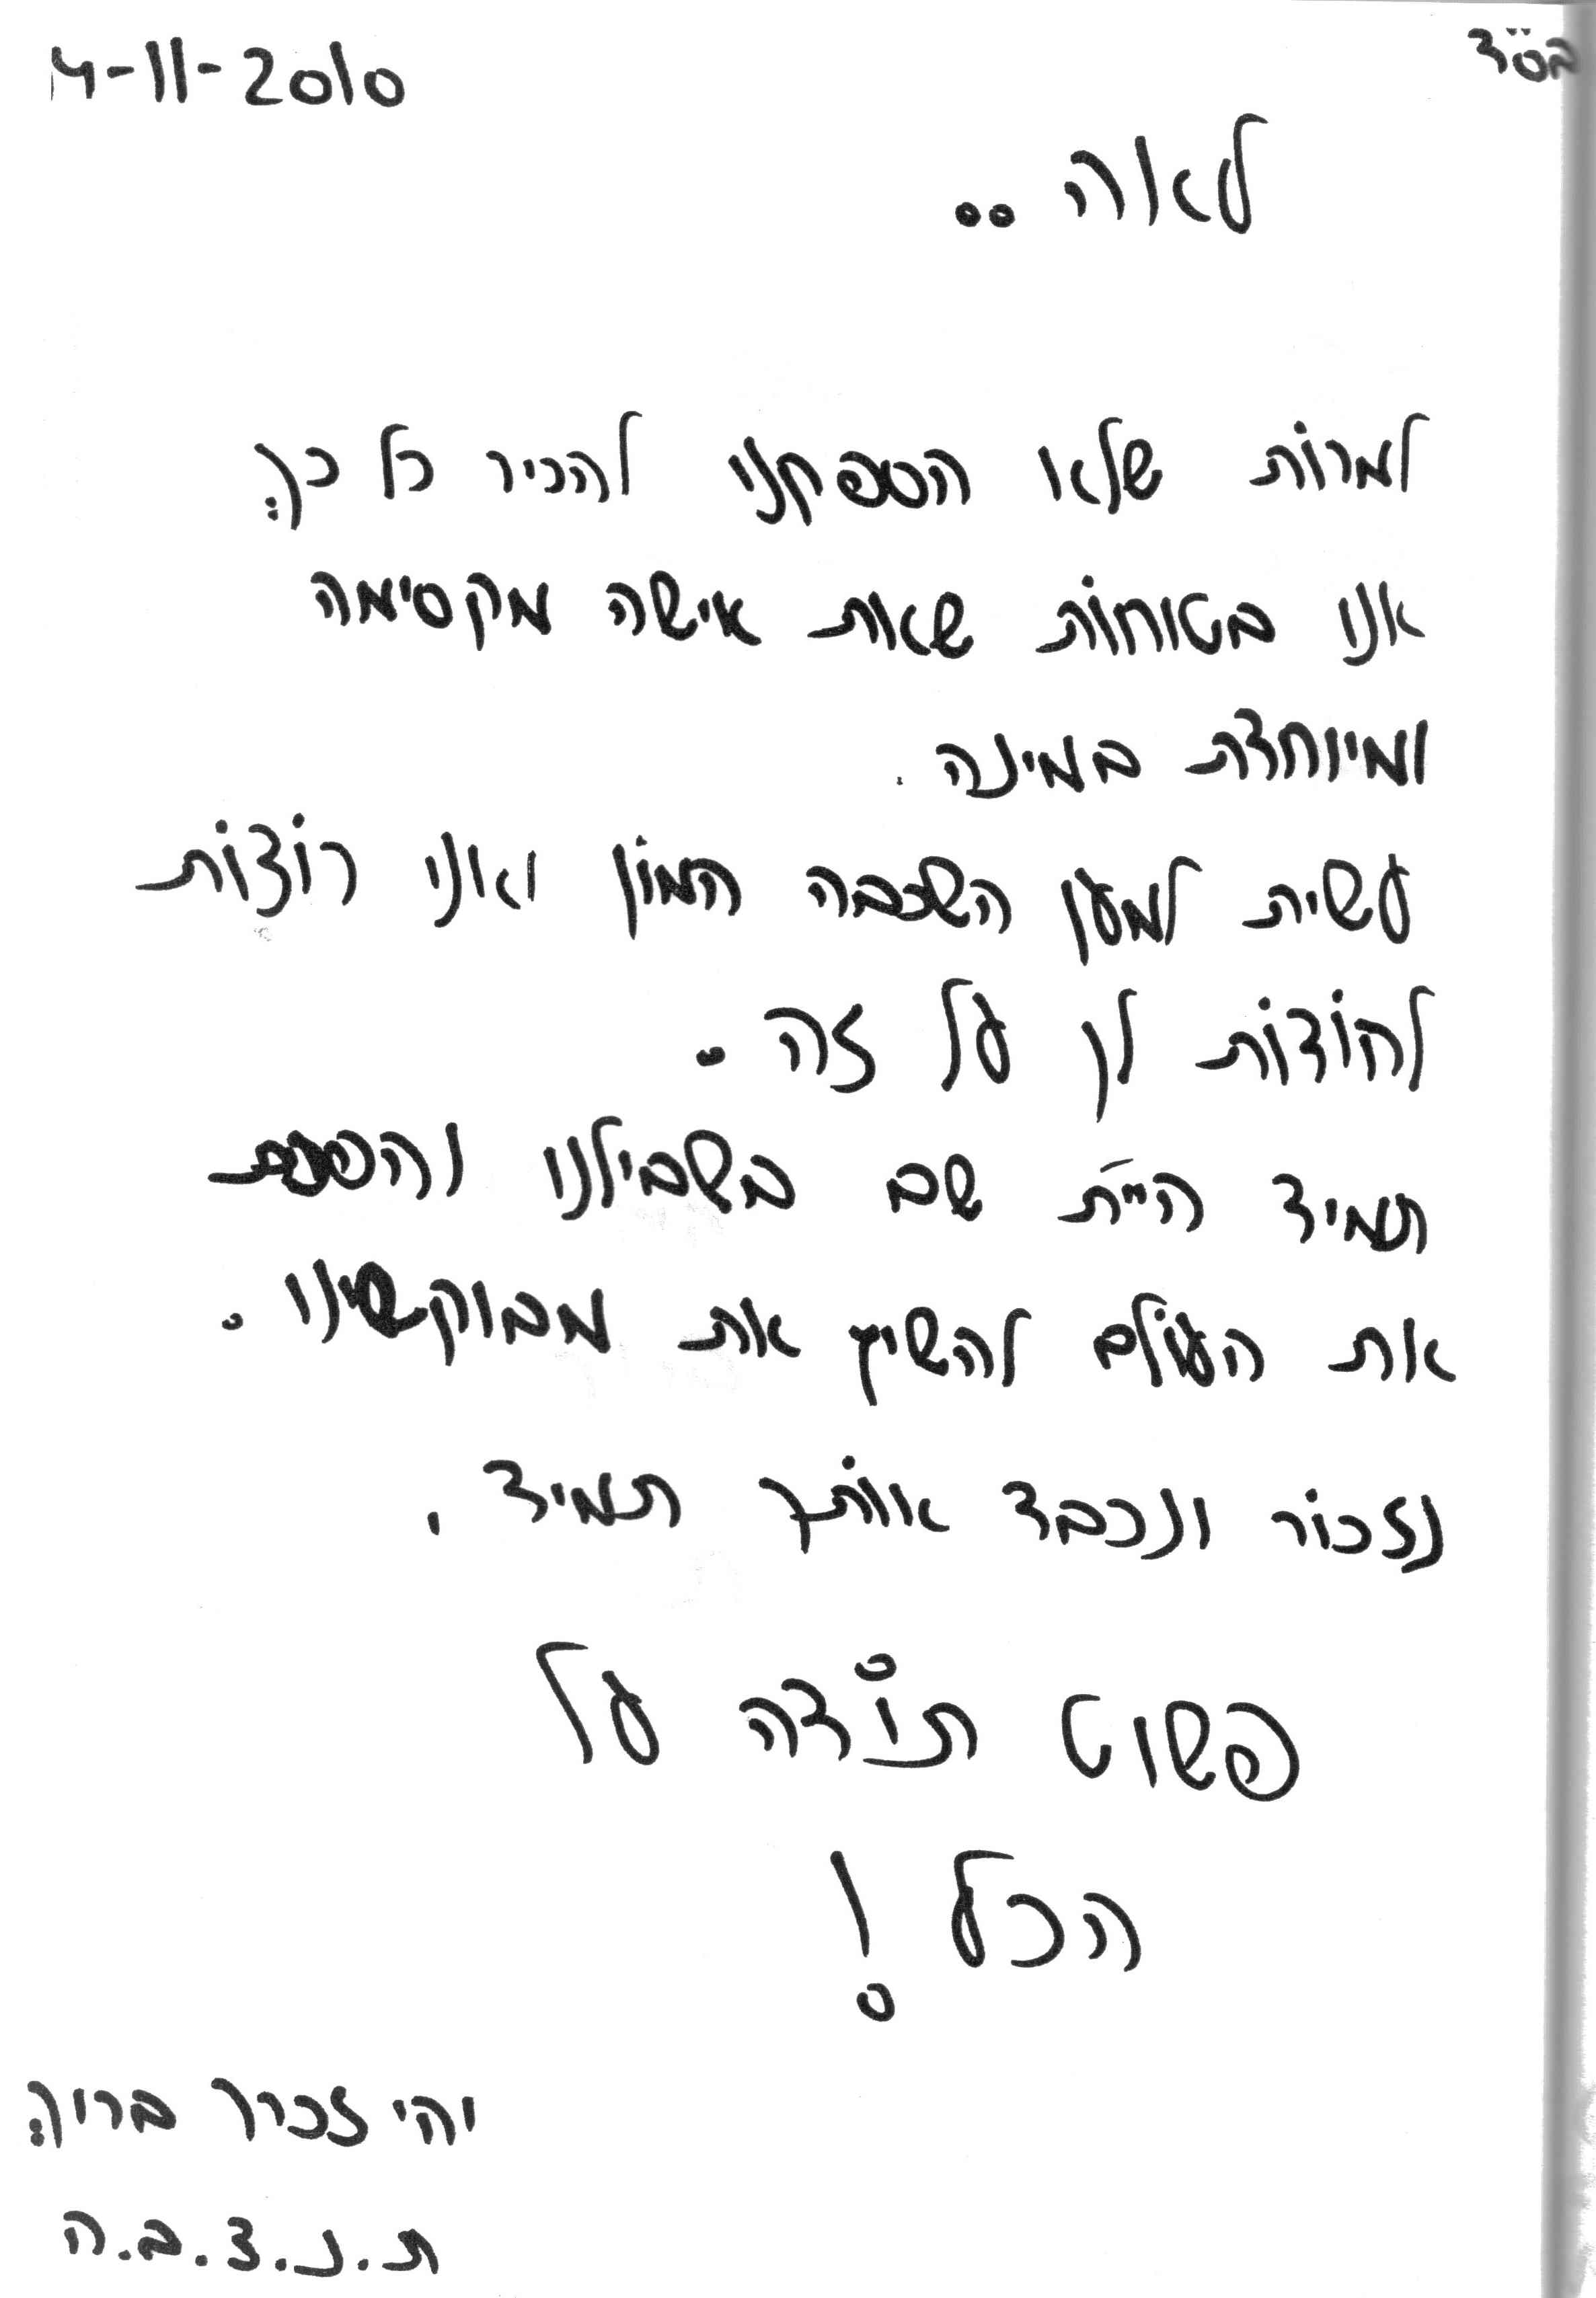 בס"ד
14-11-2010
לאה..
למרות שלא הספקנו להכיר כל כך:
אנו בטוחות שאת אישה מקסימה
ומיוחדת במינה.
עשית למען השכבה המון ואני רוצות
להודות לך על זה.
תמיד היית שם בשבילנו והפכת
את העולם להשיג את מבוקשינו.
נזכור ונכבד אותך תמיד.
פשוט תודה על
הכל!
יהי זכרך ברוך:
ת.נ.צ.ב.ה